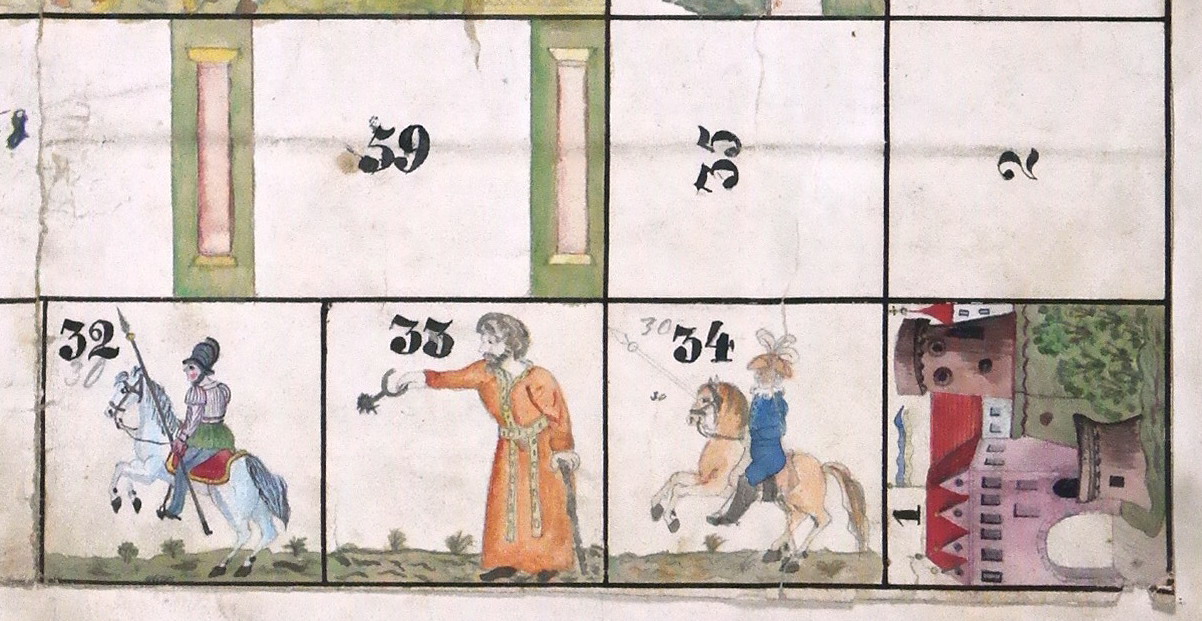 59
35
2
32
30
33
30
34
30
1